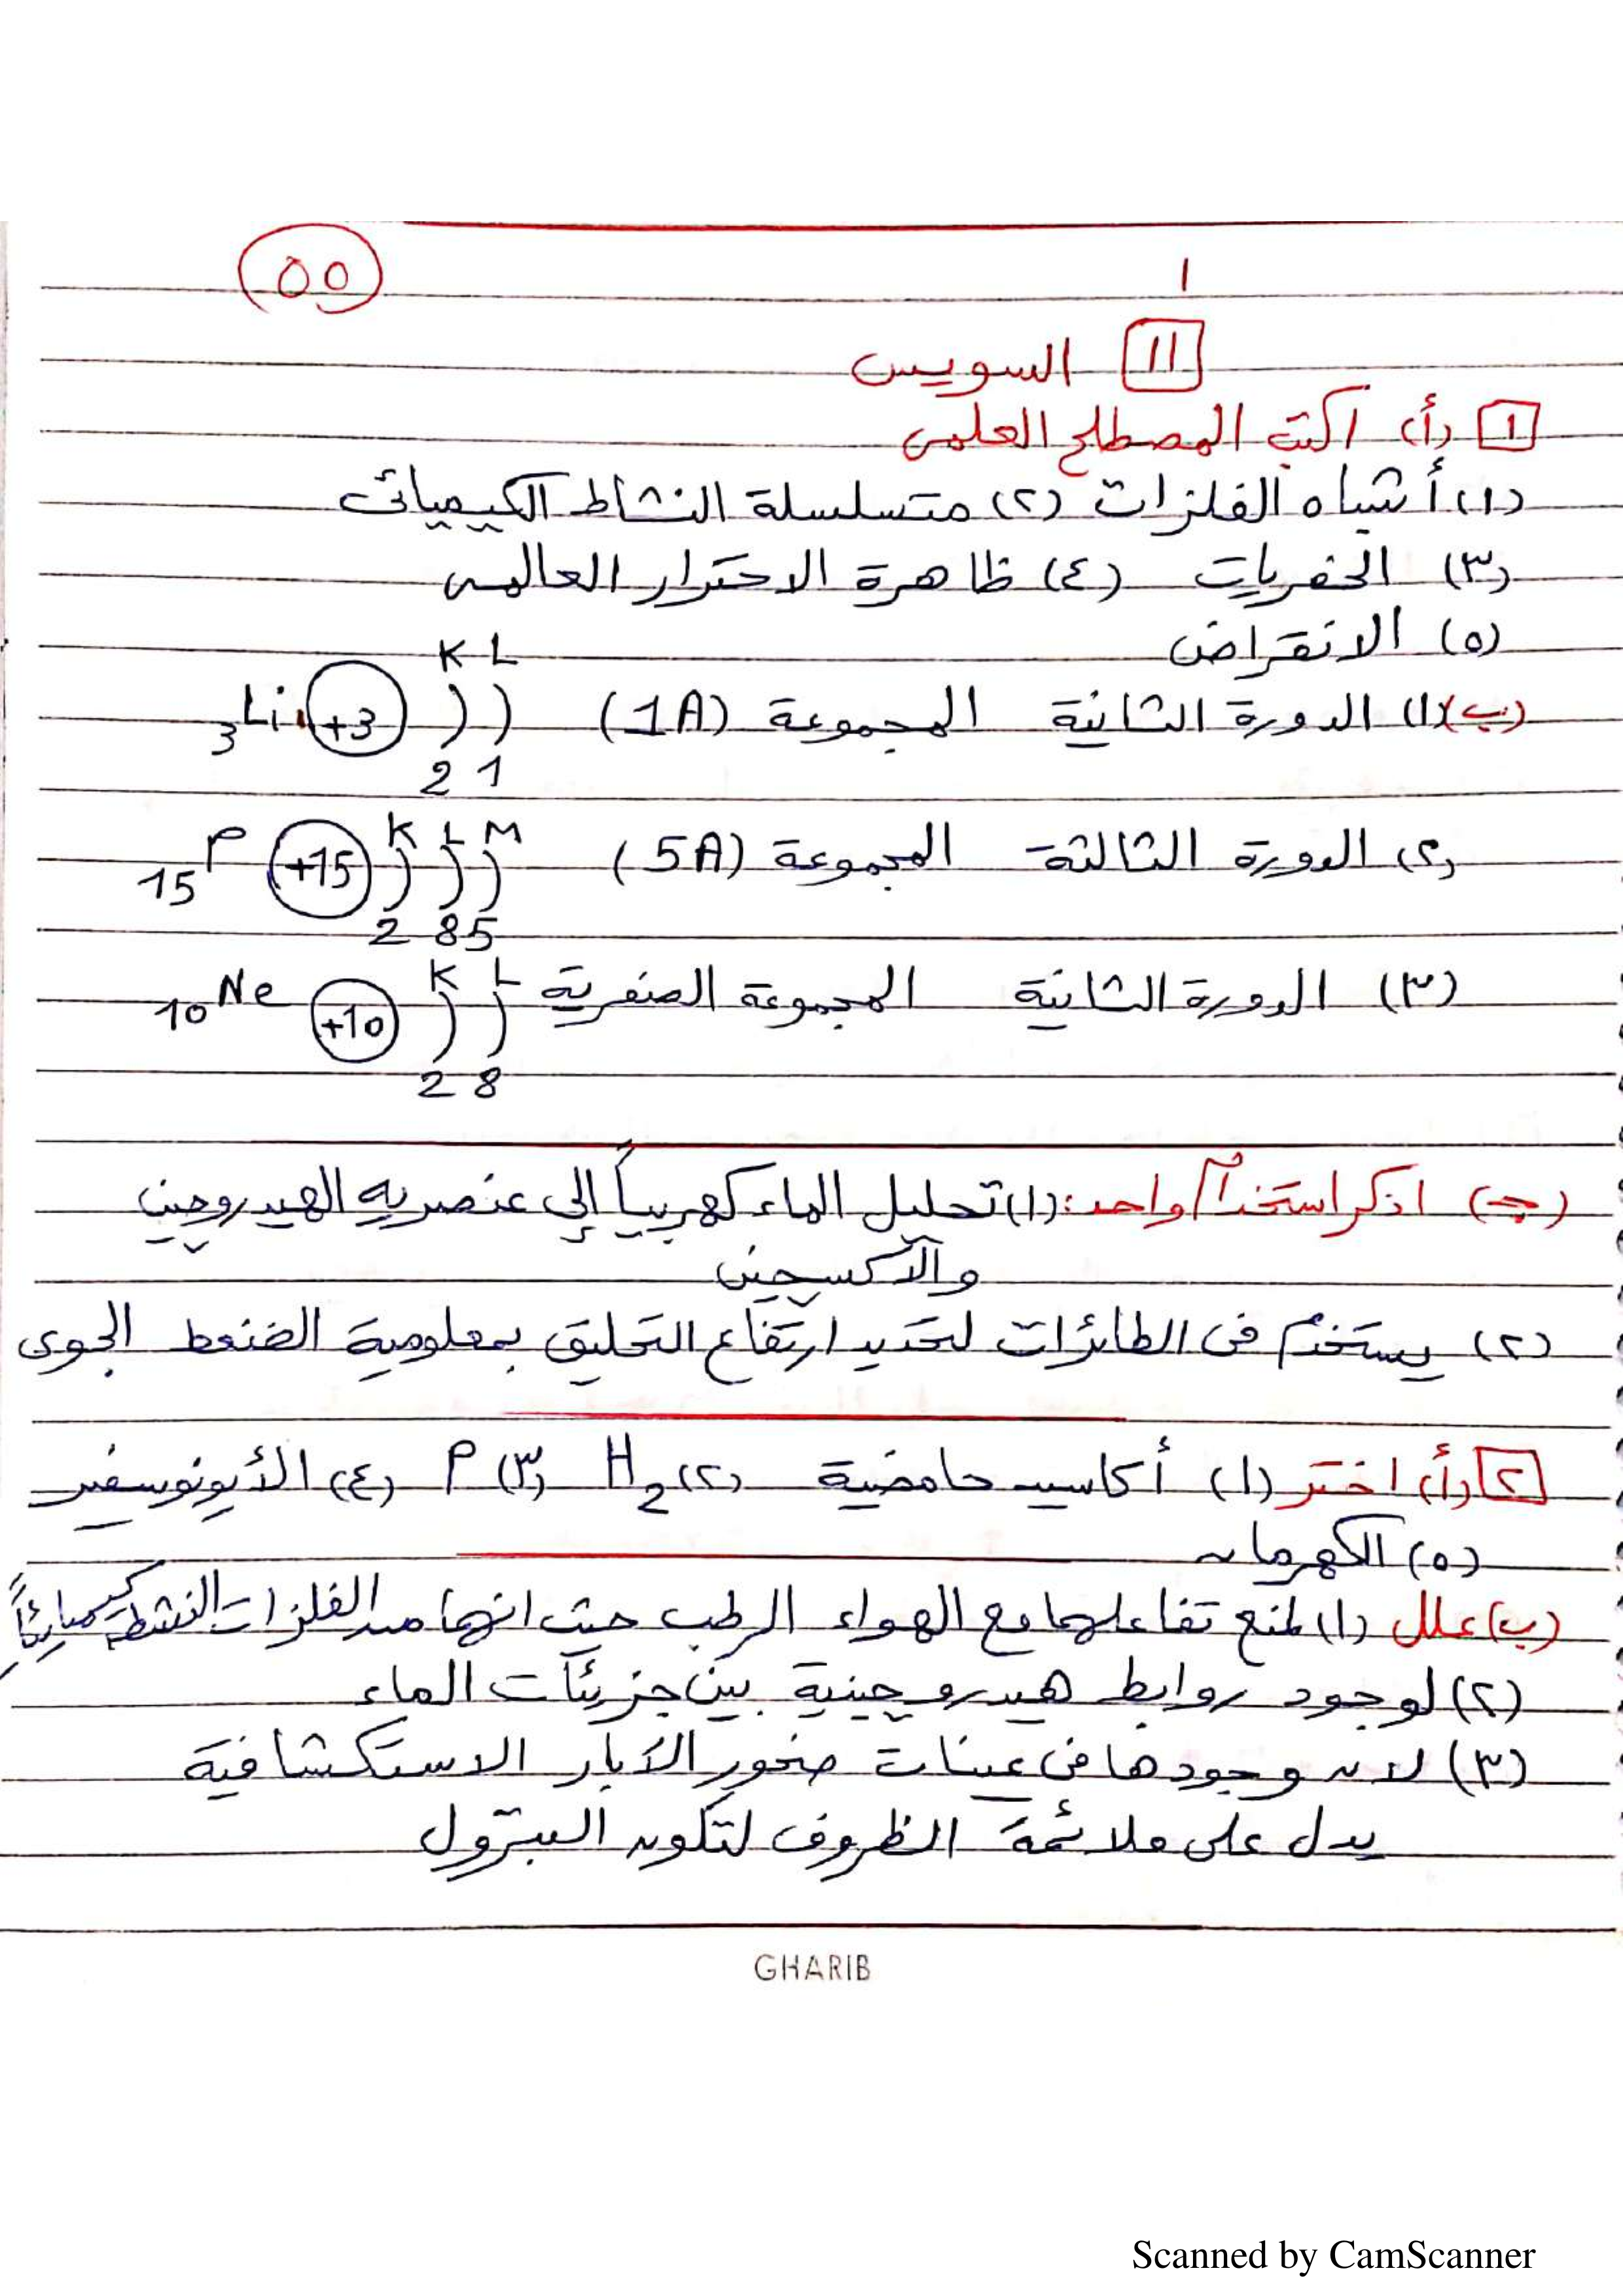 ١
٥٥
١١ السويس
١ (أ) اكتب المصطلح العلمى
(١) أشباه الفلزات (٢) متسلسلة النشاط الكيميائى
(٣) الحفريات (٤) ظاهرة الاحترار العالمى
(٥) الانقراض
K L
(ب) (١) الدورة الثانية المجموعة (1A) 3Li +3
2 1
K L M
(٢) الدورة الثالثة المجموعة (5A) 15P +15
2 8 5
K L
(٣) الدورة الثانية المجموعة الصفرية 10Ne +10
2 8
(جـ) اذكر استخداماً واحد: (١) تحليل الماء كهربياً إلى عنصريه الهيدروجين
والأكسجين
(٢) يستخدم فى الطائرات لتحديد ارتفاع التحليق بمعلومية الضغط الجوى
٢ (أ) اختر (١) أكاسيد حامضية (٢) H2 (٣) P (٤) الأيونوسفير
(٥) الكهرمان
(ب) علل (١) لمنع تفاعلهما مع الهواء الرطب حيث انهما من الفلزات النشطة كيميائياً
(٢) لوجود روابط هيدروجينية بين جزيئات الماء
(٣) لان وجودها فى عينات صخور الآبار الاستكشافية
يدل على ملائمة الظروف لتكون البترول
GHARIB
Scanned by CamScanner